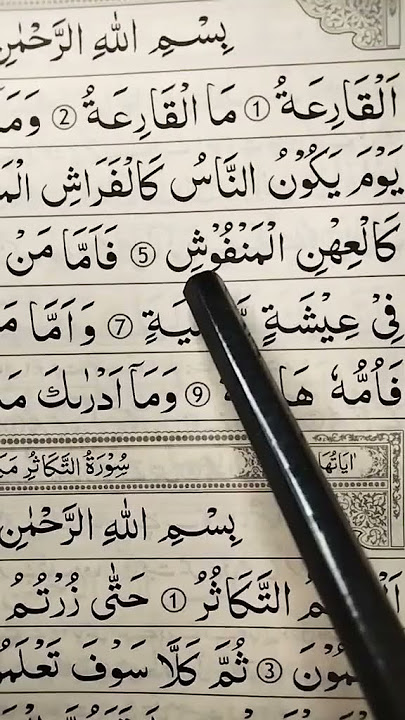 بِسْمِ اللهِ الرَّحْمٰنِ
اَلْقَارِعَةُ ① مَا الْقَارِعَةُ ② وَمَا
يَوْمَ يَكُوْنُ النَّاسُ كَالْفَرَاشِ
كَالْعِهْنِ الْمَنْفُوْشِ ⑤ فَاَمَّا مَنْ
فِيْ عِيْشَةٍ ⑦ وَاَمَّا
فَاُمُّهٗ ⑨ وَمَآ اَدْرٰىكَ
سُوْرَةُ التَّكَاثُرِ
بِسْمِ اللهِ الرَّحْمٰنِ
التَّكَاثُرُ ① حَتّٰى زُرْتُمُ
③ ثُمَّ كَلَّا سَوْفَ